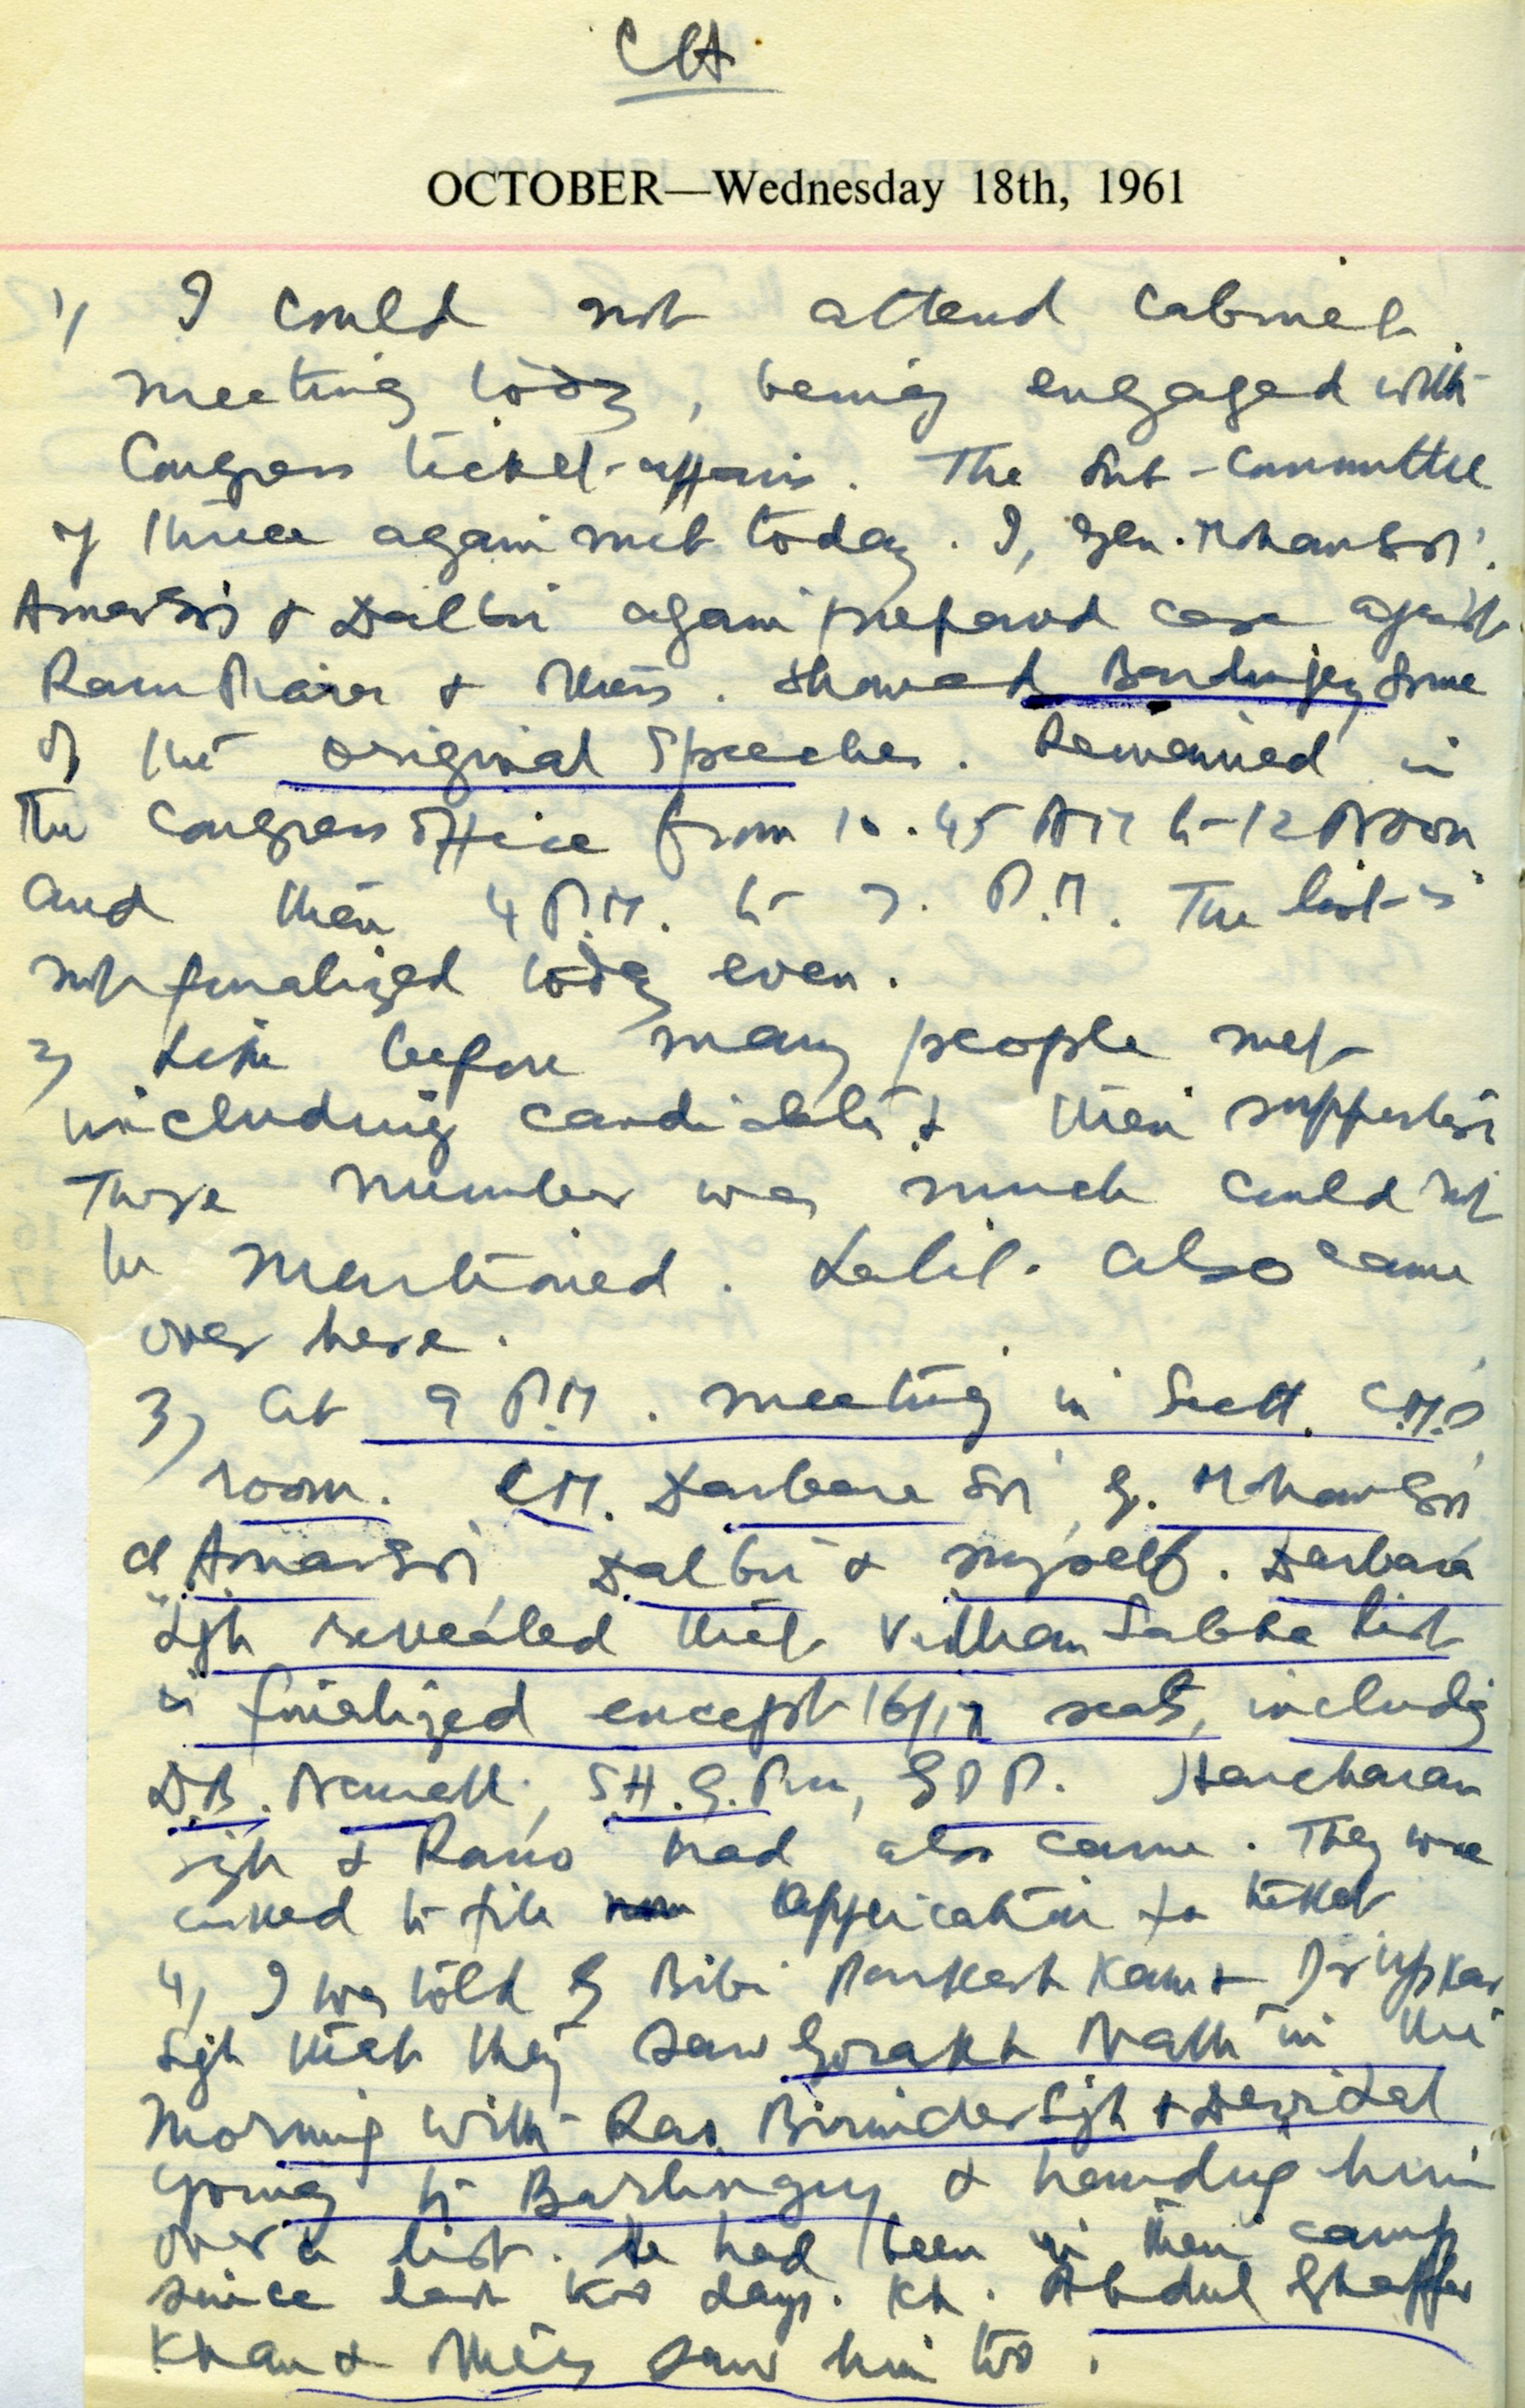 CH
OCTOBER—Wednesday 18th, 1961
1) I could not attend cabinet
meeting today, being engaged with
Congress ticket-affairs. The Sub-Committee
of three again met today. I, Gen. Mohan Sgh.
Amar Sgh & Dalbir again prepared case against
Ram Piara & others. Showed some
of the original speeches. Remained in
the Congress office from 10.45 AM to 12 Noon
and then 4 P.M. to 7. P.M. The list is
not finalized today even.
2) Like before many people met
including candidates & their supporters
Those number was much could not
be mentioned. Lalit. also came
over here.
3) At 9 P.M. meeting in Sectt. C.M.'s
room. C.M. Darbara Sgh, G. Mohan Sgh
Amar Sgh Dalbir & myself. Darbara
Sgh revealed that Vidhan Sabha list
is finalized except 16/17 seats, including
D.B. S.H. G. Hancharan
Sgh & had also came. They were
asked to file application for ticket
4) I was told by Bibi Parkash Kaur & Dr Upkar
Sgh that they saw Gorakh Nath in the
morning with Rao Birinder Sgh & Devi Lal
going to Barlingey & handing him
over a list. He had been in their camp
since last two days. Kh. Abdul Ghaffar
Khan & others saw him too.